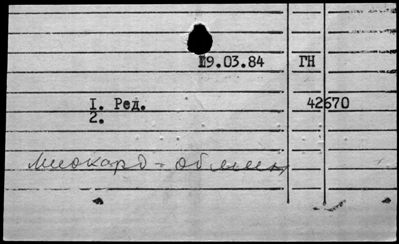 19.03.84 ГН
1. Ред. 42670
2.
миокард - обмен